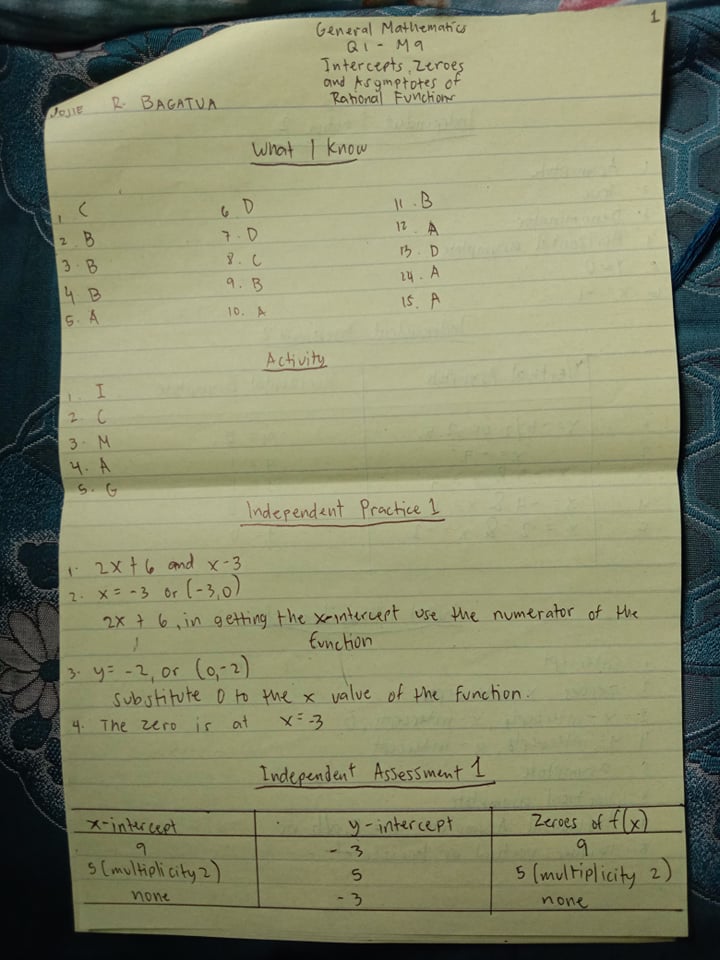 1
General Mathematics
Q1 - M9
Intercepts, Zeroes
and Asymptotes of
Rational Functions
JOSIE R. BAGATUA
What I Know
1. C
2. B
3. B
4 B
5. A
6 D
7. D
8. C
9. B
10. A
11. B
12. A
13. D
14. A
15. A
Activity
1. I
2. C
3. M
4. A
5. G
Independent Practice 1
1. 2x + 6 and x - 3
2. x = -3 or (-3,0)
2x + 6, in getting the x-intercept use the numerator of the
function
3. y = -2, or (0,-2)
substitute 0 to the x value of the function.
4. The zero is at x = -3
Independent Assessment 1
x-intercept y-intercept Zeroes of f(x)
9 -3 9
5 (multiplicity 2) 5 5 (multiplicity 2)
none -3 none